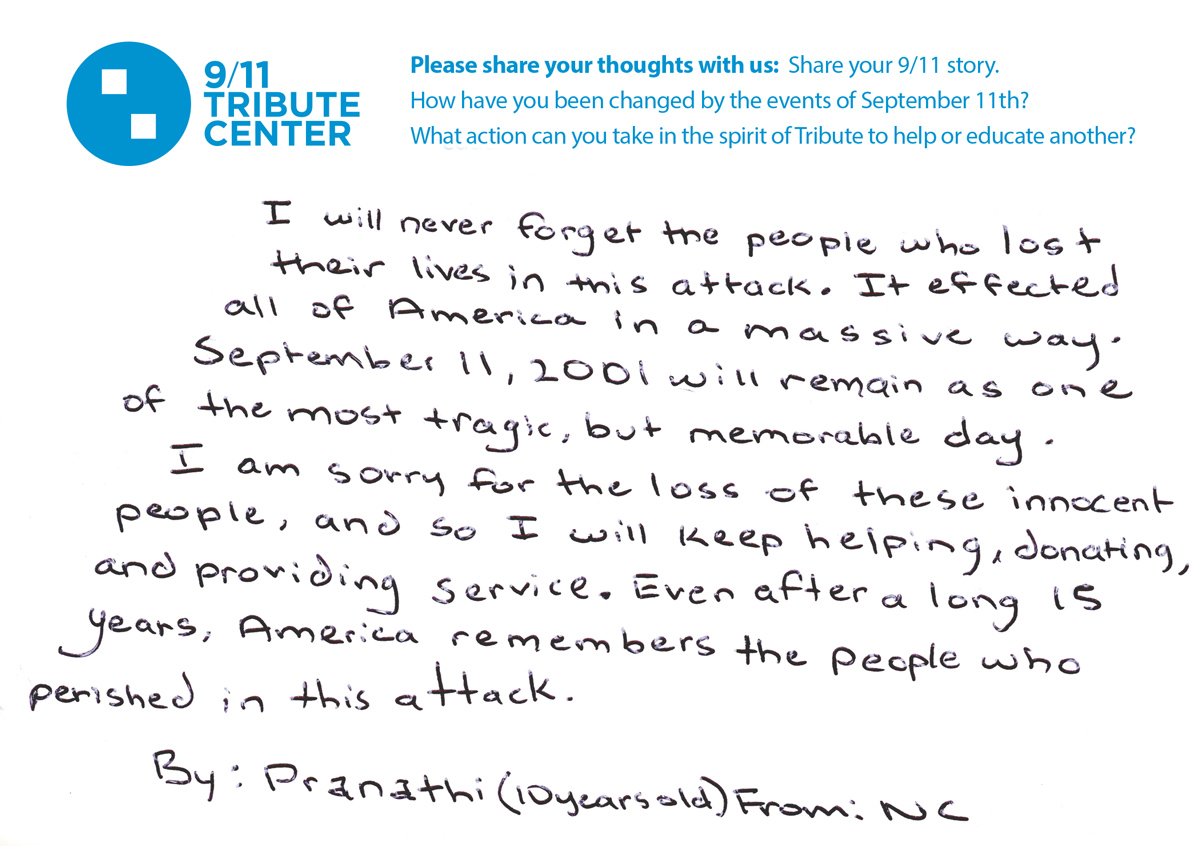 9/11
TRIBUTE
CENTER
Please share your thoughts with us: Share your 9/11 story.
How have you been changed by the events of September 11th?
What action can you take in the spirit of Tribute to help or educate another?
I will never forget the people who lost
their lives in this attack. It effected
all of America in a massive way.
September 11, 2001 will remain as one
of the most tragic, but memorable day.
I am sorry for the loss of these innocent
people, and so I will keep helping, donating,
and providing service. Even after a long 15
years, America remembers the people who
perished in this attack.
By: Pranathi (10 years old) From: NC